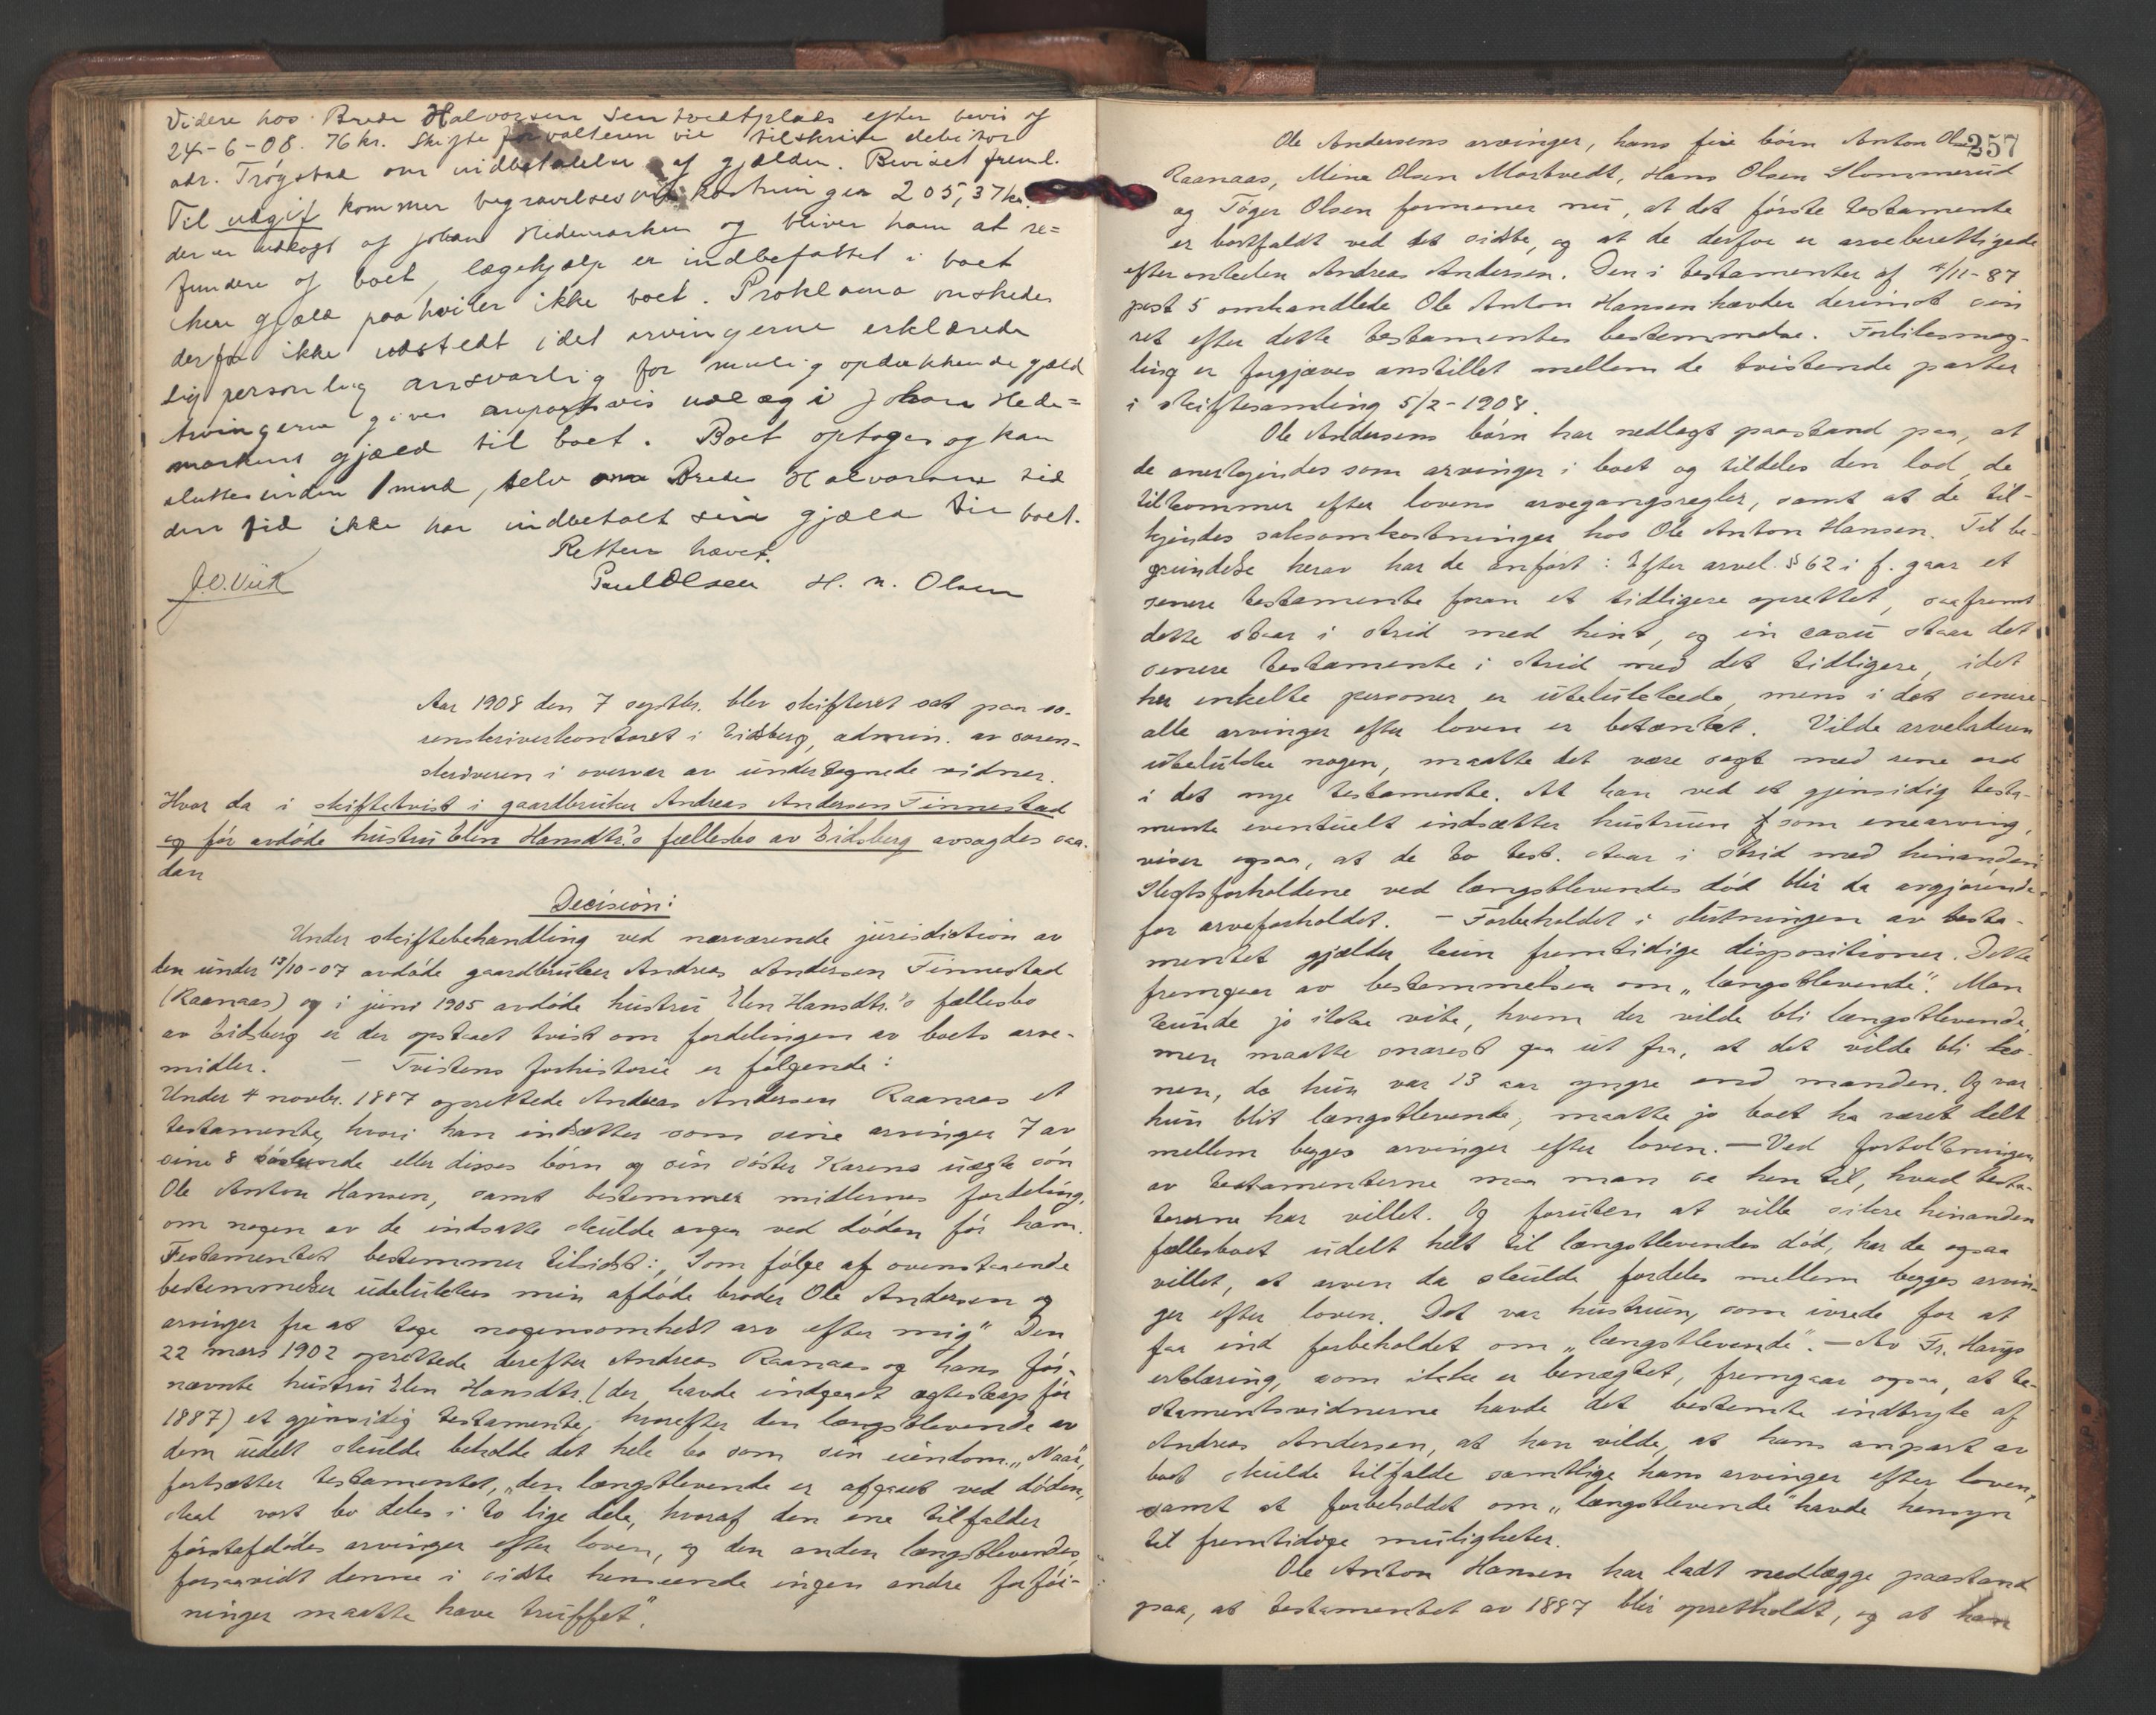 Videre hos Brede Halvorsen Sentvedtplads efter bevis af
24-6-08. 76 kr. Skifteforvalteren vil tilskrive debitor
adr. Trøgstad om indbetalelse af gjælden. Beviset freml.
Til udgift kommer begravelsesomkostninger 205,37 kr.
der er udlagt af Johan Hedemarken og bliver ham at re=
fundere af boet, lægehjælp er indbefattet i boet
hen gjæld paahviler ikke boet. Proklama ønskedes
derfor ikke udstedt idet arvingerne erklærede
sig personlig ansvarlig for mulig opdukkende gjæld
Arvingerne gives anpartsvis udlæg i Johan Hede=
markens gjæld til boet. Boet optoges og kan
sluttes inden 1 mnd, selv om Brede Halvorsen ved
den tid ikke har indbetalt sin gjæld til boet.
Retten hævet.
J.O. Vik Paul Olsen H. N. Olsen
Aar 1908 den 7 septbr. blev skifteret sat paa so-
renskriverkontoret i Eidsberg, admin. av soren-
skriveren i overvær av undertegnede vidner.
Hvor da i skiftetvist i gaardbruker Andreas Andersen Tinnestad
og før avdøde hustru Elen Hansdtr.'s fællesbo av Eidsberg avsagdes saa-
dan
Decision:
Under skiftebehandling ved nærværende jurisdiction av
den under 13/10-07 avdøde gaardbruker Andreas Andersen Tinnestad
(Raanaas) og i juni 1905 avdøde hustru Elen Hansdtr.'s fællesbo
av Eidsberg er der opstaaet tvist om fordelingen av boets arve-
midler. — Tvistens forhistorie er følgende:
Under 4 novbr. 1887 oprettede Andreas Andersen Raanaas et
testamente, hvori han indsætter som sine arvinger 7 av
sine 8 søskende eller disses børn og sin søster Karens uægte søn
Ole Anton Hansen, samt bestemmer midlernes fordeling,
om nogen av de indsatte skulde avgaa ved døden før ham.
Testamentet bestemmer tilsidst: „Som følge af ovenstaaende
bestemmelser udelukkes min afdøde broder Ole Andersen og
arvinger fra at tage nogensomhelst arv efter mig" Den
22 mars 1902 oprettede derefter Andreas Raanaas og hans før-
nævnte hustru Elen Hansdtr. (der havde indgaaet ægteskap før
1887) et gjensidig testamente, hvorefter den længstlevende av
dem udelt skulde beholde det hele bo som sin eiendom. „Naar",
fortsætter testamentet, „den længstlevende er afgaaet ved døden,
skal vort bo deles i to lige dele, hvoraf den ene tilfalder
førstafdødes arvinger efter loven, og den anden længstlevendes,
forsaavidt denne i sidste henseende ingen andre forføi-
ninger maatte have truffet".
257
Ole Andersens arvinger, hans fire børn Anton Olsen
Raanaas, Mina Olsen Mortvedt, Hans Olsen Slommerud
og Tøger Olsen formener nu, at det første testamente
er bortfaldt ved det sidste, og at de derfor er arveberettigede
efter onkelen Andreas Andersen. Den i testamentet af 4/11-87
post 5 omhandlede Ole Anton Hansen hævder derimot sin
ret efter dette testamentes bestemmelse. Forliksmæg-
ling er forgjæves anstillet mellem de tvistende parter
i skiftesamling 5/2-1908.
Ole Andersens børn har nedlagt paastand paa, at
de anerkjendes som arvinger i boet og tildeles den lod, de
tilkommer efter lovens arvegangsregler, samt at de til-
kjendes saksomkostninger hos Ole Anton Hansen. Til be-
grundelse herav har de anført: Efter arvel. § 62 i f. gaar et
senere testamente foran et tidligere oprettet, saafremt
dette staar i strid med hint, og in casu staar det
senere testamente i strid med det tidligere, idet
her enkelte personer er utelukkede, mens i det senere
alle arvinger efter loven er betænkt. Vilde arveladeren
utelukke nogen, maatte det være sagt med rene ord
i det nye testamente. At han ved et gjensidig testa-
mente eventuelt indsætter hustruen som enearving,
viser ogsaa, at de to test. staar i strid med hinanden.
Slegtsforholdene ved længstlevendes død blir da avgjørende
for arveforholdet. — Forbeholdet i slutningen av testa-
mentet gjælder kun fremtidige dispositioner. Dette
fremgaar av bestemmelsen om „længstlevende". Man
kunde jo ikke vite, hvem der vilde bli længstlevende,
men maatte snarest gaa ut fra, at det vilde bli ko-
nen, da hun var 13 aar yngre end manden. Og var
hun blit længstlevende, maatte jo boet ha været delt
mellem begges arvinger efter loven. — Ved fortolkningen
av testamenterne maa man se hen til, hvad testa-
torerne har villet. Og foruten at ville sikre hinanden
fællesboet udelt helt til længstlevendes død, har de ogsaa
villet, at arven da skulde fordeles mellem begges arvin-
ger efter loven. Det var hustruen, som ivrede for at
faa ind forbeholdet om „længstlevende". — Av Fr. Haugs
erklæring, som ikke er benægtet, fremgaar ogsaa, at te-
stamentsvidnerne havde det bestemte indtryk af
Andreas Andersen, at han vilde, at hans anpart av
boet skulde tilfalde samtlige hans arvinger efter loven,
samt at forbeholdet om „længstlevende" havde hensyn
til fremtidige muligheter.
Ole Anton Hansen har ladt nedlægge paastand
paa, at testamentet av 1887 blir opretholdt, og at han